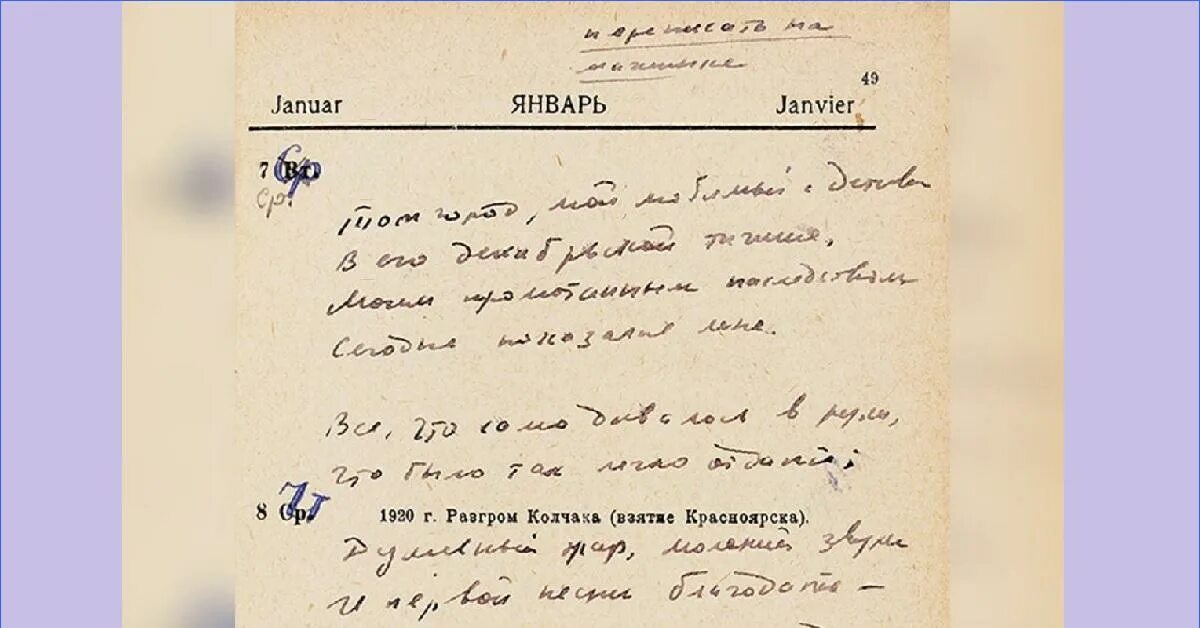 переписать на
машинке
49
Januar ЯНВАРЬ Janvier
7 Вт. Ср
Ср.
Тот город, мой любимый с детства
В его декабрьской тишине,
Моим промотанным наследством
Сегодня показался мне.
Все, что само давалось в руки,
Что было так легко отдать:
8 Ср. Чт
1920 г. Разгром Колчака (взятие Красноярска).
Душевный жар, молений звуки
И первой песни благодать —